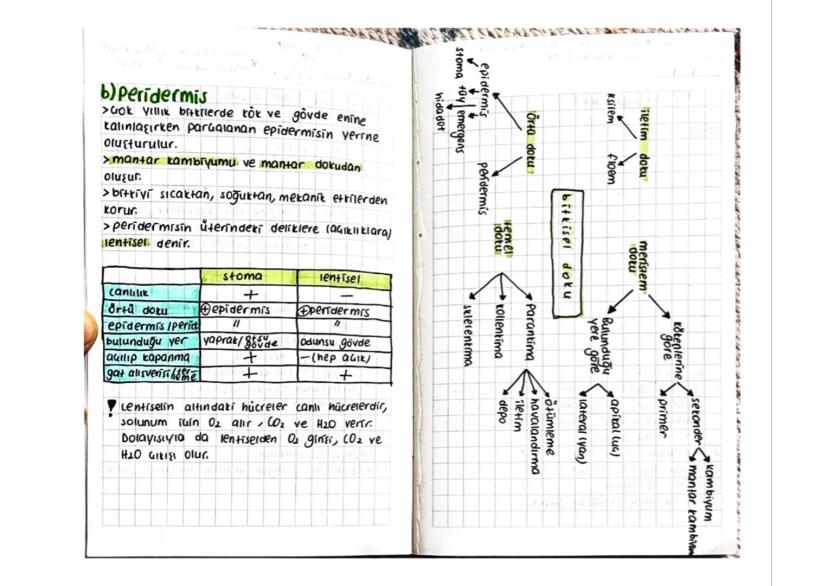 b) peridermis
>Çok yıllık bitkilerde kök ve gövde enine
kalınlaşırken parçalanan epidermisin yerine
oluşturulur.
>mantar kambiyumu ve mantar dokudan
oluşur.
>bitkiyi sıcaktan, soğuktan, mekanik etkilerden
korur.
>peridermisin üzerindeki deliklere (açıklıklara)
lentisel denir.
stoma lentisel
canlılık + −
örtü doku +epidermis +peridermis
epidermis/perid " "
bulunduğu yer yaprak/otsu gövde odunsu gövde
açılıp kapanma + −(hep açık)
gaz alışverişi + +
! Lentiselin altındaki hücreler canlı hücrelerdir,
solunum için O2 alır, CO2 ve H2O verir.
Dolayısıyla da lentiselden O2 girişi, CO2 ve
H2O çıkışı olur.
bitkisel doku
iletim doku
ksilem
floem
örtü doku
epidermis
stoma tüy emergens
hidatot
peridermis
meristem
doku
kökenlerine
göre
sekonder
kambiyum
mantar kambiyum
primer
Bulunduğu
yere göre
apikal (uç)
lateral (yan)
temel
doku
Parankima
özümleme
havalandırma
iletim
depo
kollenkima
sklerenkima